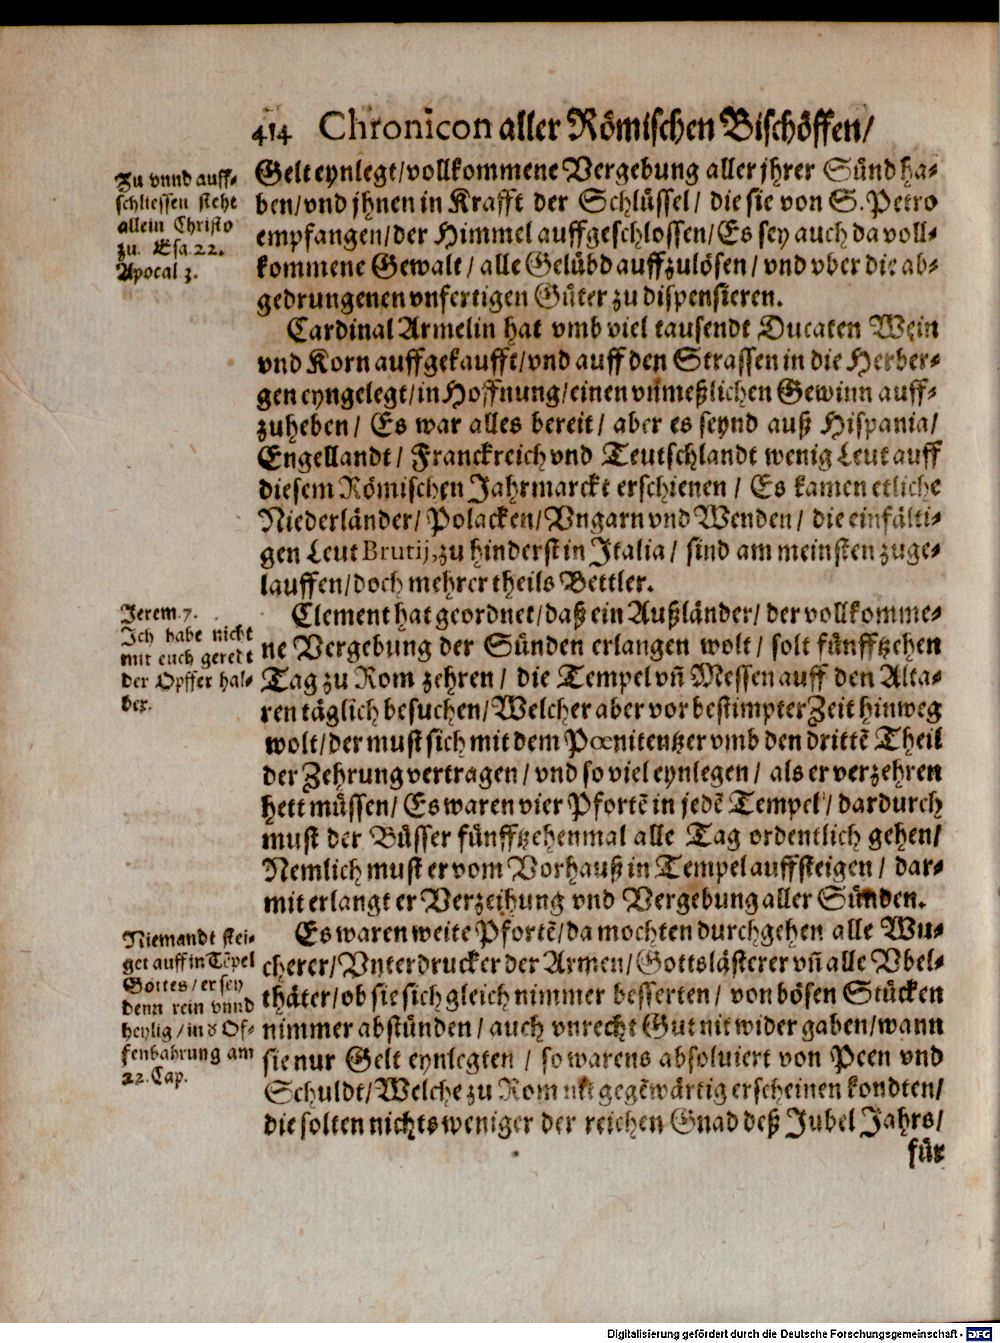 414 Chronicon aller Römischen Bischöffen/
Zu vnnd auff-
schliessen steht
allein Christo
zu. Esa. 22.
Apocal 3.
Gelt eynlegt/vollkommene Vergebung aller jhrer Sünd ha-
ben/vnd jhnen in Krafft der Schlüssel/ die sie von S. Petro
empfangen/der Himmel auffgeschlossen/Es sey auch da voll-
kommene Gewalt/ alle Gelübd auffzulösen/ vnd vber die ab-
gedrungenen vnfertigen Güter zu dispensieren.
Cardinal Armelin hat vmb viel tausendt Ducaten Wein
vnd Korn auffgekaufft/vnd auff den Strassen in die Herber-
gen eyngelegt/in Hoffnung/einen vnmeßlichen Gewinn auff-
zuheben/ Es war alles bereit/ aber es seynd auß Hispania/
Engellandt/ Franckreich vnd Teutschlandt wenig Leut auff
diesem Römischen Jahrmarckt erschienen/ Es kamen etliche
Niederländer/ Polacken/Vngarn vnd Wenden/ die einfälti-
gen Leut Brutij, zu hinderst in Italia/ sind am meinsten zuge-
lauffen/doch mehrer theils Bettler.
Jerem. 7.
Ich habe nicht
mit euch geredt
der Opffer hal-
ber.
Clement hat geordnet/daß ein Außländer/ der vollkomme-
ne Vergebung der Sünden erlangen wolt/ solt fünfftzehen
Tag zu Rom zehren/ die Tempel vñ Messen auff den Alta-
ren täglich besuchen/Welcher aber vor bestimpter Zeit hinweg
wolt/der must sich mit dem Pœnitentzer vmb den drittẽ Theil
der Zehrung vertragen/ vnd so viel eynlegen/ als er verzehren
hett müssen/ Es waren vier Pfortẽ in jedẽ Tempel/ dardurch
must der Büsser fünfftzehenmal alle Tag ordentlich gehen/
Nemlich must er vom Vorhauß in Tempel auffsteigen/ dar-
mit erlangt er Verzeihung vnd Vergebung aller Sünden.
Niemandt stei-
get auff in Tẽpel
Gottes/ er sey
denn rein vnnd
heylig/in d Of-
fenbahrung am
22. Cap.
Es waren weite Pfortẽ/da mochten durchgehen alle Wu-
cherer/Vnterdrucker der Armen/Gottslästerer vñ alle Vbel-
thäter/ob sie sich gleich nimmer besserten/ von bösen Stücken
nimmer abstünden/ auch vnrecht Gut nit wider gaben/wann
sie nur Gelt eynlegten/ so warens absoluiert von Peen vnd
Schuldt/Welche zu Rom nit gegẽwärtig erscheinen kondten/
die solten nichts weniger der reichen Gnad deß Jubel Jahrs/
für
Digitalisierung gefördert durch die Deutsche Forschungsgemeinschaft - DFG